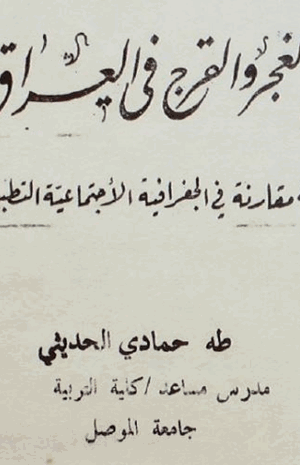 لغجر والقرج في العراق
مقارنة في الجغرافية الأجتماعية التطب
طه حمادي الحديثي
مدرس مساعد / كلية التربية
جامعة الموصل